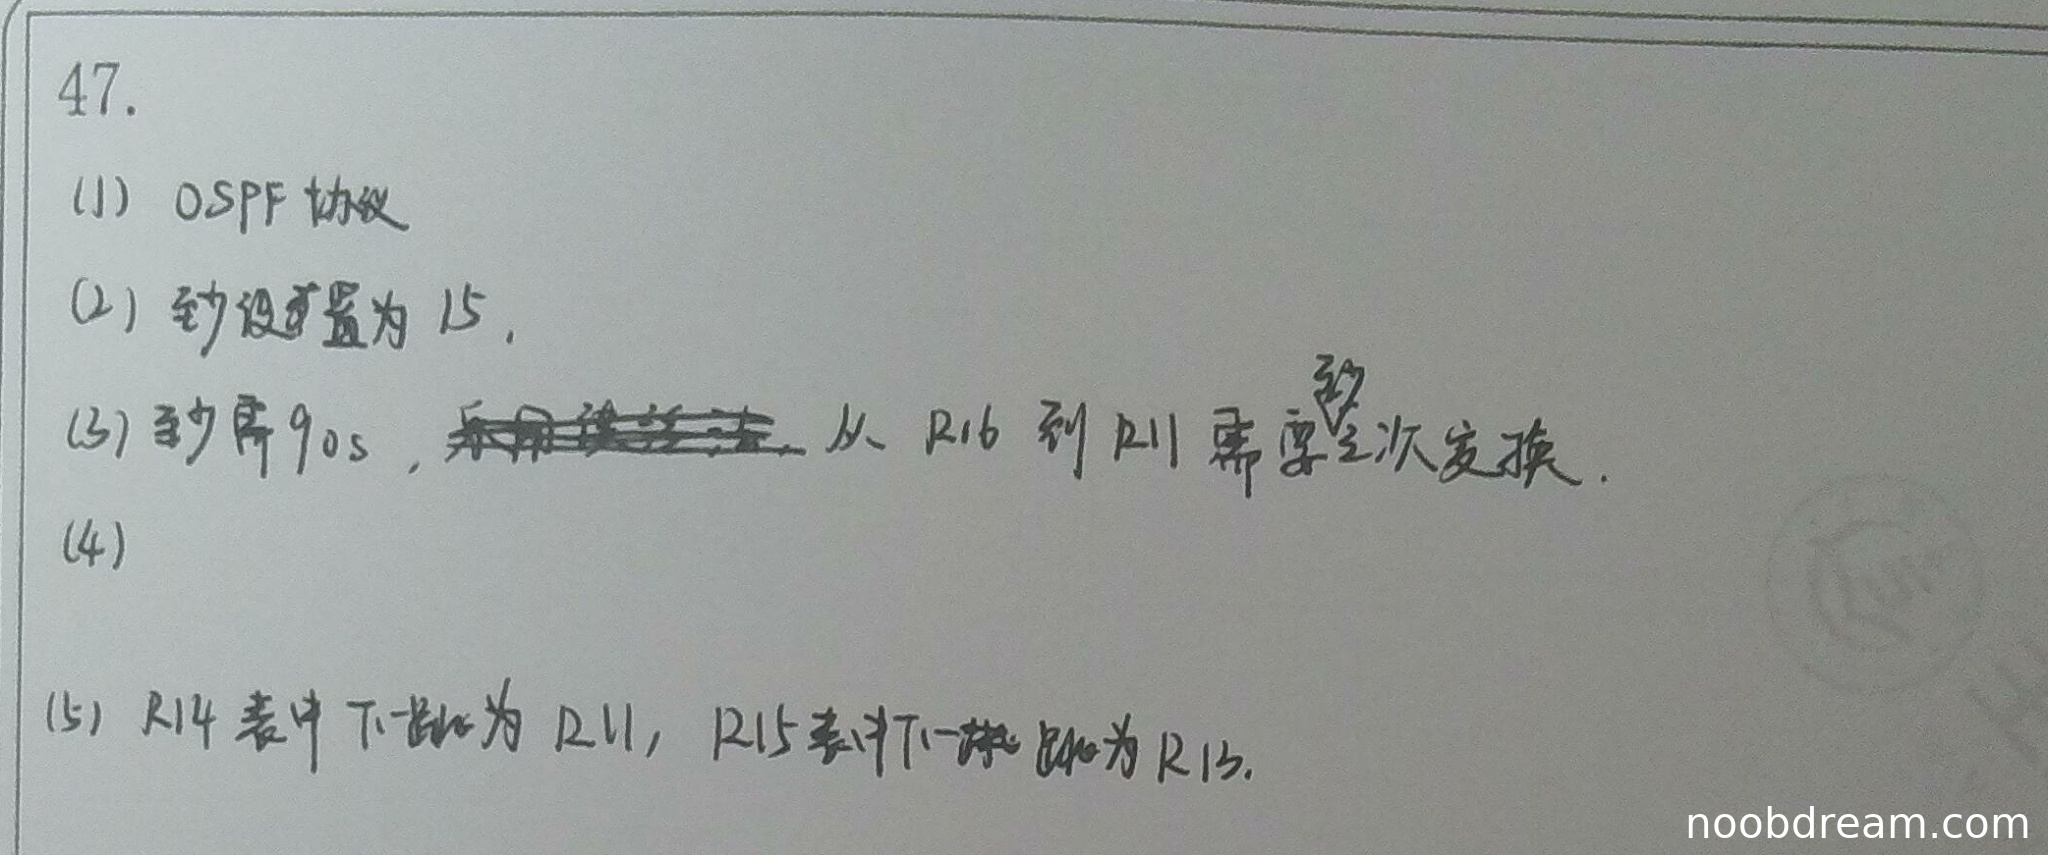 47.
(1) OSPF 协议
(2) 至少设置为 15.
(3) 至少需90s, 从 R16 到 R11 需要至少三次交换.
(4)
(5) R14 表中下一跳为 R11, R15表中下一跳为R13.
noobdream.com